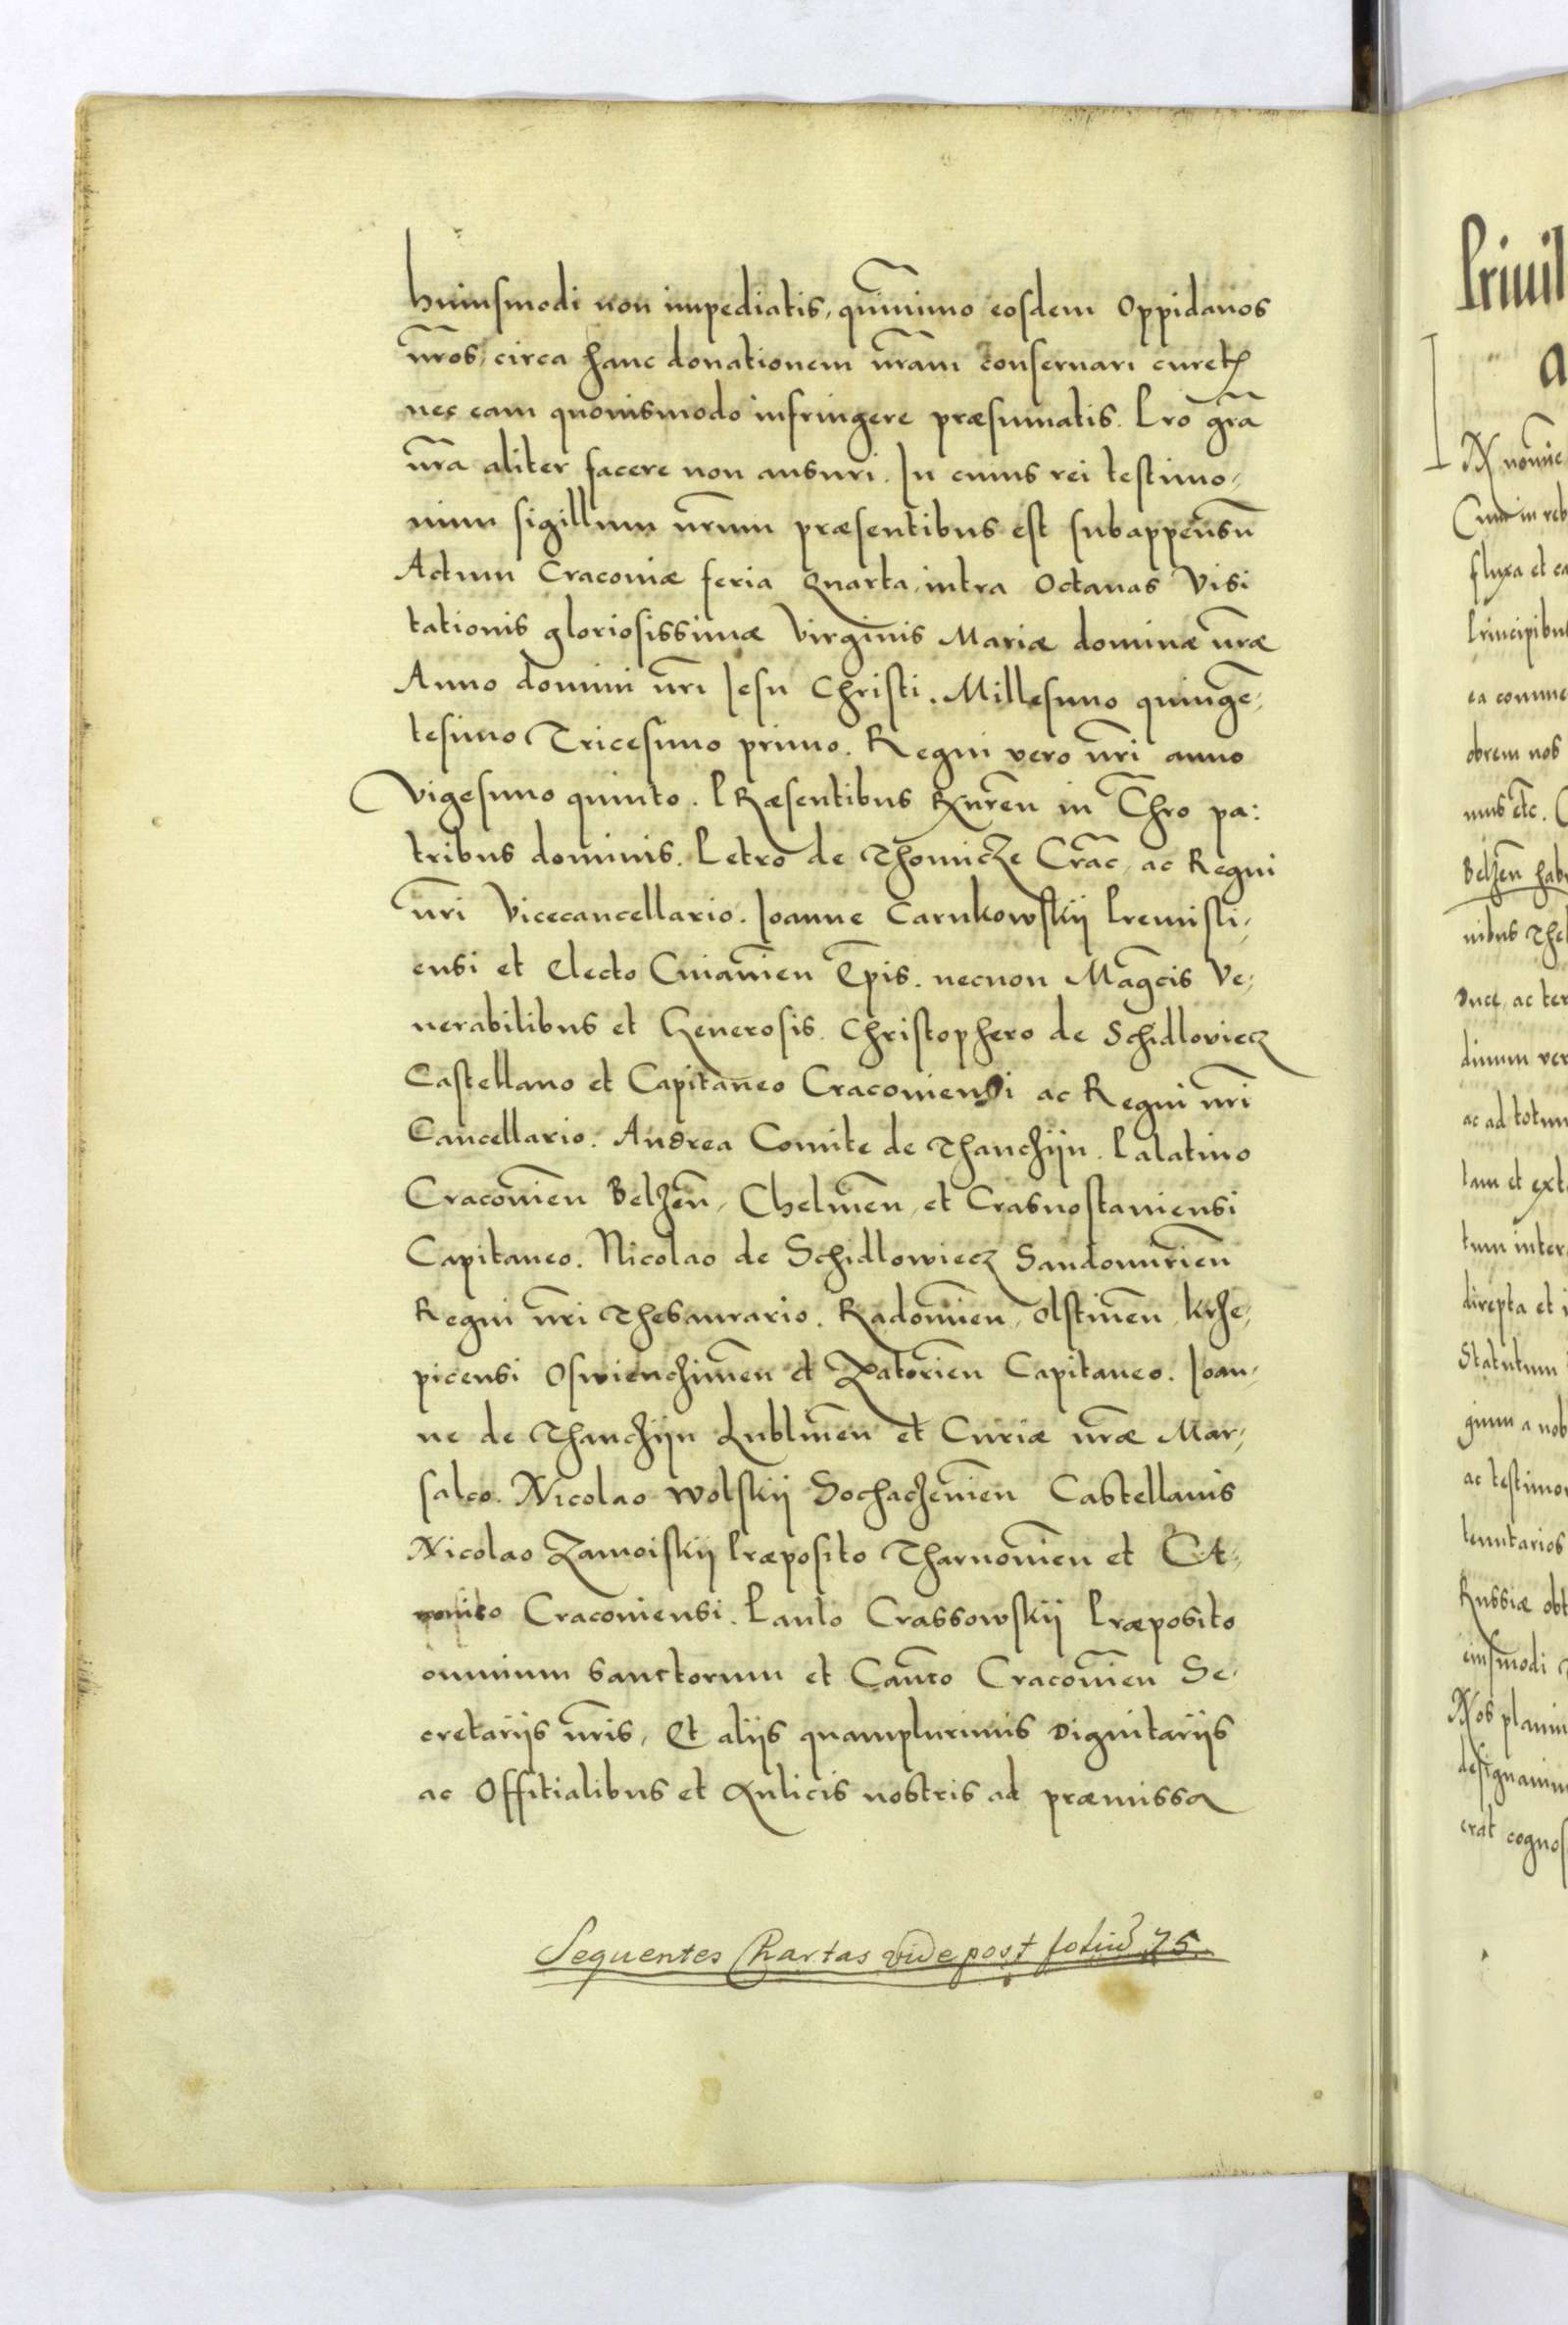 huiusmodi non impediatis, quīnimo eosdem Oppidanos
nr̄os, circa hanc donationem nr̄am conseruari curetis
nec eam quouismodo infringere præsumatis. Pro gr̄a
nr̄a aliter facere non ausuri. In cuius rei testimo,
nium sigillum nr̄um præsentibus est subappensū
Actum Cracouiæ feria Quarta intra Octauas Visi
tationis gloriosissimæ Virginis Mariæ dominæ nr̄æ
Anno domini nr̄i Iesu Christi. Millesimo quingē,
tesimo Tricesimo primo. Regni vero nr̄i anno
Vigesimo quinto. PRæsentibus Rūren in Chro pa:
tribus dominis. Petro de Thomicze Crac̄, ac Regni
nr̄i Vicecancellario. Ioanne Carnkowskij Premisli,
ensi et Electo Cuiauien̄ Ep̄is. necnon Mag̅cis Ve,
nerabilibus et Generosis. Christophero de Schidloviecz
Castellano et Capitaneo Cracouiensi ac Regni nr̄i
Cancellario. Andrea Comite de Thanczijn. Palatino
Cracouien̄ Belzen̄, Chelmen̄, et Crasnostauiensi
Capitaneo. Nicolao de Schidlowiecz Sandomirien̄
Regni nr̄i Thesaurario. Radomien̄, Olstinen̄ Krze,
picensi Oswienczimen̄ et Zatorien̄ Capitaneo. Ioan,
ne de Thanczijn Lublinen̄ et Curiæ nr̄æ Mar,
salco. Nicolao Wolskij Sochaczeuien̄ Castellanis
Nicolao Zamoiskij Præposito Tharnouien̄ et Ca,
nonico Cracouiensi. Paulo Crassowskij Præposito
omnium Sanctorum et Can̄co Cracouien̄ Se,
cretarijs nr̄is, Et alijs quamplurimis Dignitarijs
ac Offitialibus et Aulicis nostris ad præmissa
Sequentes Chartas vide post foliū 75.
Priuil
a
IN nomīe
Cum in reb
fluxa et ca
Principibu
ea comme
obrem nos
mus etc. C
Belzen̄ hab
nibus The
Duce, ac ter
dinum ver
ac ad totum
tam et exte
tum inter
direpta et i
Statutum
gium a nob
ac testimon
tenutarios
Russiæ obt
eiusmodi
Nos planiu
designauim
erat cognos